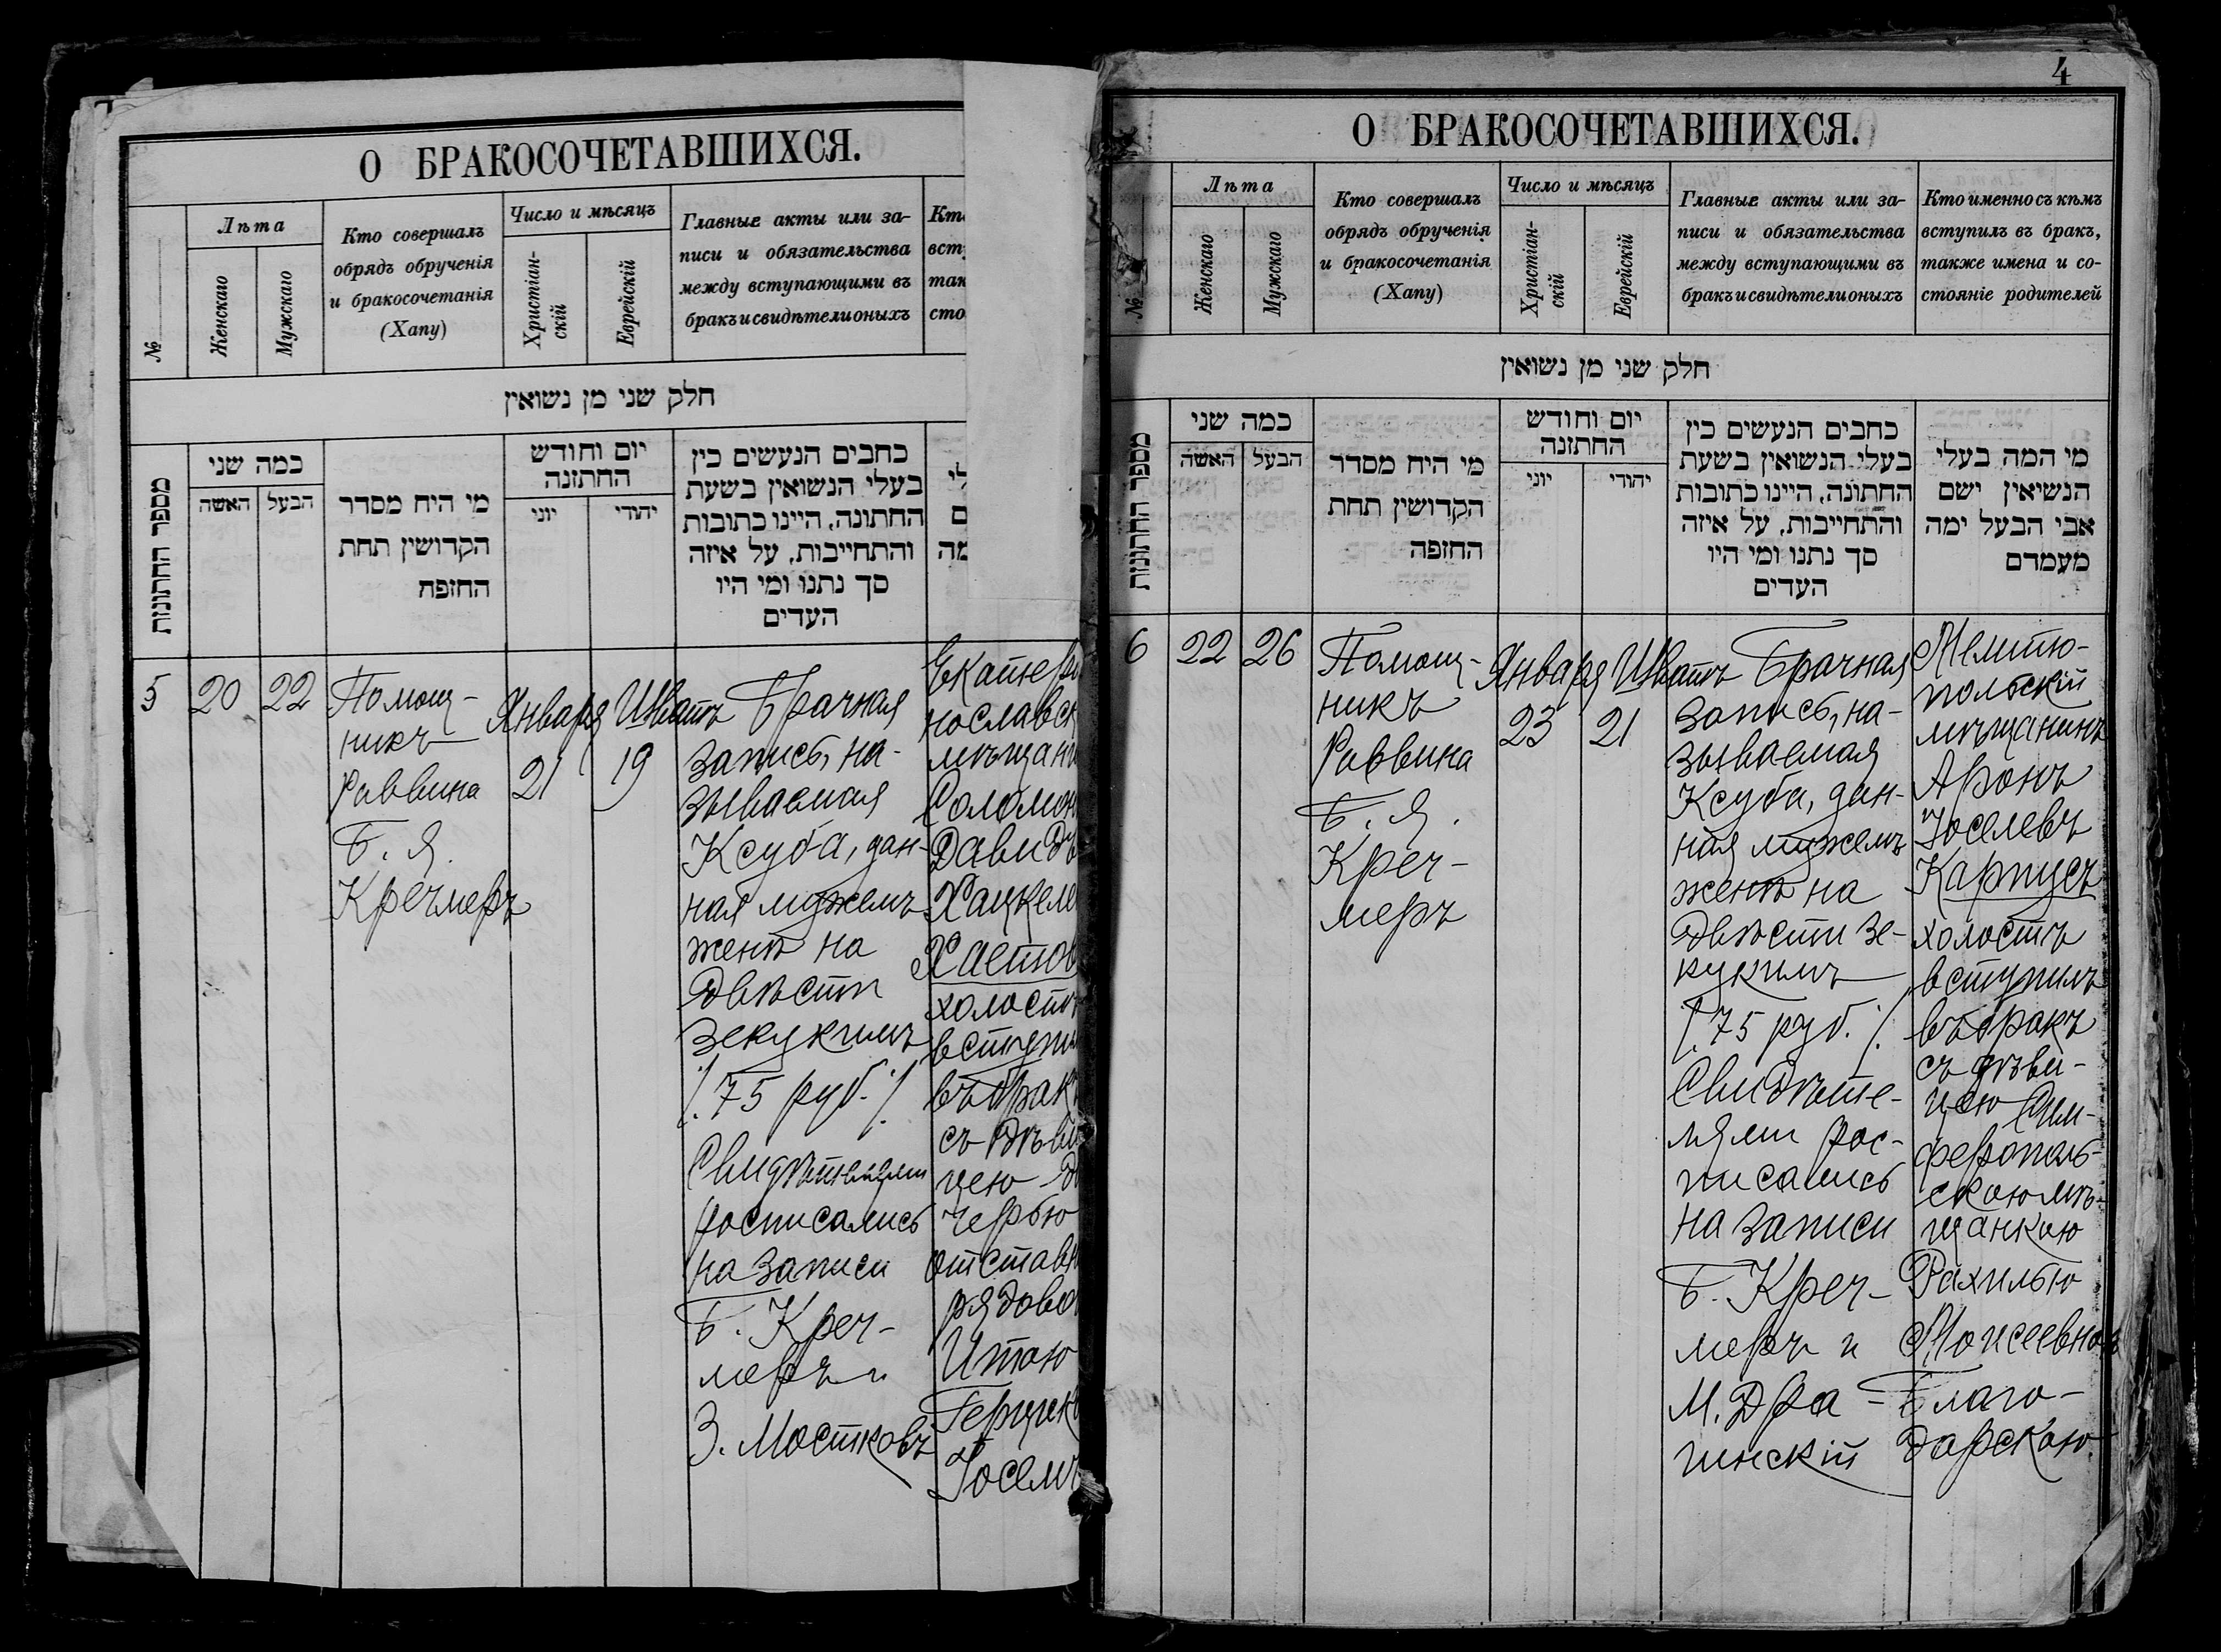 О БРАКОСОЧЕТАВШИХСЯ.
№
Лѣта
Женскаго
Мужскаго
Кто совершалъ
обрядъ обрученія
и бракосочетанія
(Хапу)
Число и мѣсяцъ
Христіан-
скій
Еврейскій
Главные акты или за-
писи и обязательства
между вступающими въ
бракъ и свидѣтели оныхъ
חלק שני מן נשואין
מספר החתונות
כמה שני
האשה
הבעל
מי היח מסדר
הקדושין תחת
החופה
יום וחודש
החתונה
יוני
יהודי
כחבים הנעשים כין
בעלי הנשואין בשעת
החתונה, היינו כתובות
והתחייבות, על איזה
סך נתנו ומי היו
העדים
5
20
22
Помощ-
никъ
Раввина
Б. Я.
Кречмеръ
Января
21
Шватъ
19
Брачная
запись, на-
зываемая
Ксуба, дан-
ная мужемъ
женѣ на
двѣсти
зекукимъ
/. 75 руб. ./
Свидѣтелями
росписались
на записи
Б. Креч-
меръ и
З. Мостковъ
Екатери
нославск
мѣщани
Соломон
Давидъ
Хацкеле
Хаетов
холостъ
вступи
въ брак
съ дѣви
цею до
черью
отставн
рядово
Итою
Герцико
Іосемъ
4
О БРАКОСОЧЕТАВШИХСЯ.
№
Лѣта
Женскаго
Мужскаго
Кто совершалъ
обрядъ обрученія
и бракосочетанія
(Хапу)
Число и мѣсяцъ
Христіан-
скій
Еврейскій
Главные акты или за-
писи и обязательства
между вступающими въ
бракъ и свидѣтели оныхъ
Кто именно съ кѣмъ
вступилъ въ бракъ,
также имена и со-
стояніе родителей
חלק שני מן נשואין
מספר החתונות
כמה שני
האשה
הבעל
מי היח מסדר
הקדושין תחת
החופה
יום וחודש
החתונה
יוני
יהודי
כחבים הנעשים כין
בעלי הנשואין בשעת
החתונה, היינו כתובות
והתחייבות, על איזה
סך נתנו ומי היו
העדים
מי המה בעלי
הנשיאין ישם
אבי הבעל ימה
מעמדם
6
22
26
Помощ-
никъ
Раввина
Б. Я.
Креч-
меръ
Января
23
Шватъ
21
Брачная
запись, на-
зываемая
Ксуба, дан-
ная мужемъ
женѣ на
двѣсти зе-
кукимъ
/. 75 руб. ./
Свидѣте-
лями рос-
писались
на записи
Б. Креч-
меръ и
М. Дра-
гинскій
Мелито-
польскій
мѣщанинъ
Аронъ
Іоселевъ
Карпусъ
холостъ
вступилъ
въ бракъ
съ дѣви-
цею Сим-
ферополь-
скою мѣ-
щанкою
Рахилью
Моисеевною
Благо-
дарскою.